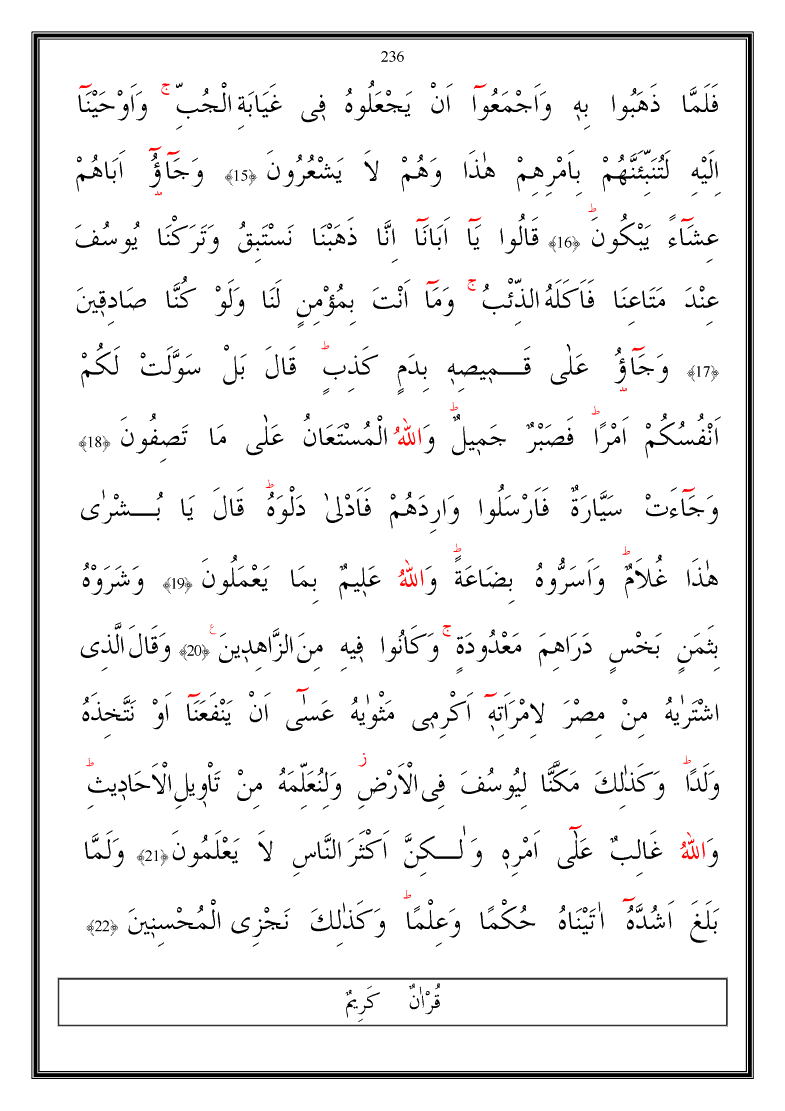 236
فَلَمَّا ذَهَبُوا بِهٖ وَاَجْمَعُوٓا اَنْ يَجْعَلُوهُ فٖى غَيَابَةِ الْجُبِّۚ وَاَوْحَيْنَآ
اِلَيْهِ لَتُنَبِّئَنَّهُمْ بِاَمْرِهِمْ هٰذَا وَهُمْ لَا يَشْعُرُونَ ﴿15﴾ وَجَآؤُٓ اَبَاهُمْ
عِشَآءً يَبْكُونَؕ ﴿16﴾ قَالُوا يَٓا اَبَانَٓا اِنَّا ذَهَبْنَا نَسْتَبِقُ وَتَرَكْنَا يُوسُفَ
عِنْدَ مَتَاعِنَا فَاَكَلَهُ الذِّئْبُۚ وَمَٓا اَنْتَ بِمُؤْمِنٍ لَنَا وَلَوْ كُنَّا صَادِقٖينَ
﴿17﴾ وَجَآؤُ عَلٰى قَمٖيصِهٖ بِدَمٍ كَذِبٍؕ قَالَ بَلْ سَوَّلَتْ لَكُمْ
اَنْفُسُكُمْ اَمْرًاؕ فَصَبْرٌ جَمٖيلٌؕ وَاللّٰهُ الْمُسْتَعَانُ عَلٰى مَا تَصِفُونَ ﴿18﴾
وَجَآءَتْ سَيَّارَةٌ فَاَرْسَلُوا وَارِدَهُمْ فَاَدْلىٰ دَلْوَهُؕ قَالَ يَا بُـشْرٰى
هٰذَا غُلَامٌؕ وَاَسَرُّوهُ بِضَاعَةًؕ وَاللّٰهُ عَلٖيمٌ بِمَا يَعْمَلُونَ ﴿19﴾ وَشَرَوْهُ
بِثَمَنٍ بَخْسٍ دَرَاهِمَ مَعْدُودَةٍۚ وَكَانُوا فٖيهِ مِنَ الزَّاهِدٖينَ ﴿20﴾ ع وَقَالَ الَّذِى
اشْتَرٰيهُ مِنْ مِصْرَ لِامْرَاَتِهٖٓ اَكْرِمٖى مَثْوٰيهُ عَسٰٓى اَنْ يَنْفَعَنَٓا اَوْ نَتَّخِذَهُ
وَلَدًاؕ وَكَذٰلِكَ مَكَّنَّا لِيُوسُفَ فِى الْاَرْضِؗ وَلِنُعَلِّمَهُ مِنْ تَاْوٖيلِ الْاَحَادٖيثِؕ
وَاللّٰهُ غَالِبٌ عَلٰٓى اَمْرِهٖ وَلٰـكِنَّ اَكْثَرَ النَّاسِ لَا يَعْلَمُونَ ﴿21﴾ وَلَمَّا
بَلَغَ اَشُدَّهُٓ اٰتَيْنَاهُ حُكْمًا وَعِلْمًاؕ وَكَذٰلِكَ نَجْزِى الْمُحْسِنٖينَ ﴿22﴾
قُرْاٰنٌ كَرِيمٌ